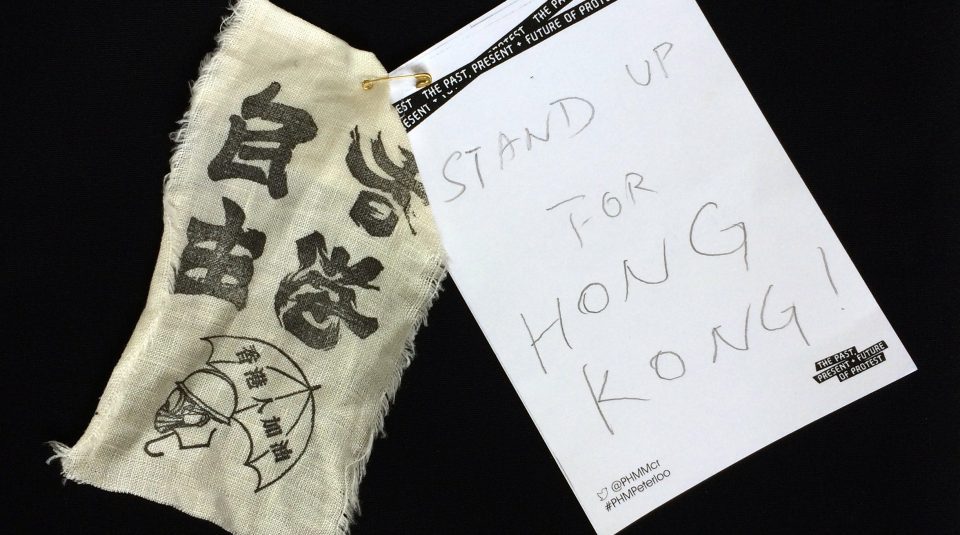 香港
自由
香港人加油
THE PAST,
PROTEST THE PAST, PRESENT + FUTURE OF PROTEST
PRESENT +
STAND UP
FOR
HONG
KONG!
THE PAST,
PRESENT + FUTURE
OF PROTEST
@PHMMcr
#PHMPeterloo